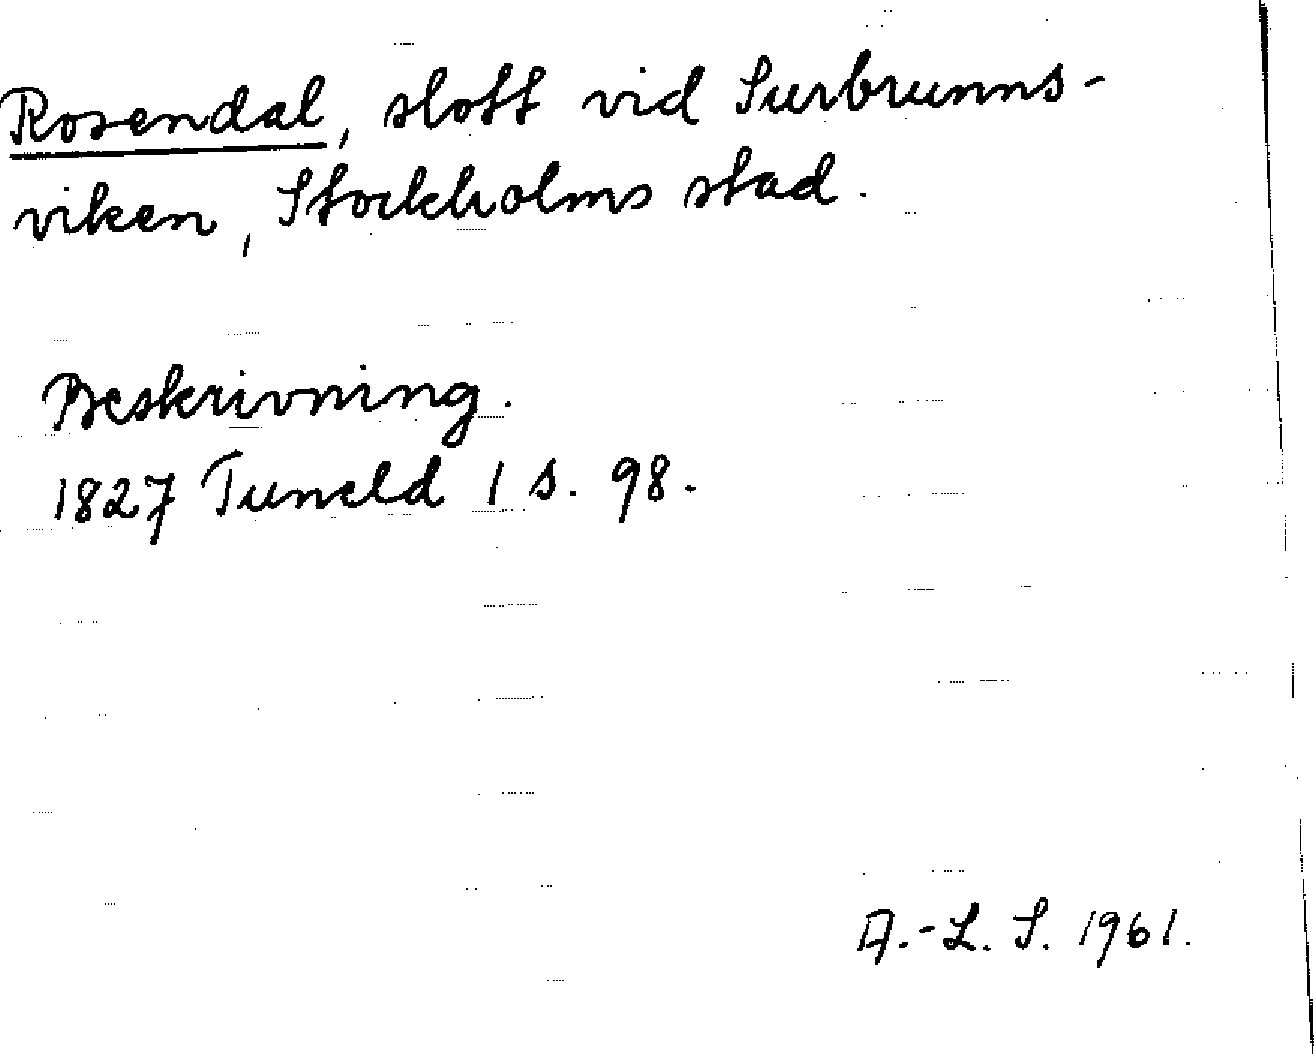 Rosendal, slott vid Surbrunns-
viken, Stockholms stad.
Beskrivning.
1827 Tuneld 1 s. 98.
A.-L. S. 1961.